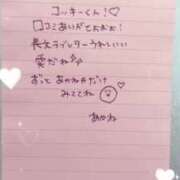 コッキーくん!♡
口コミありがとぉぉぉ!
長文ラブレターうれしいい
愛かな
ずっとあかねだけ
みててね
あかね